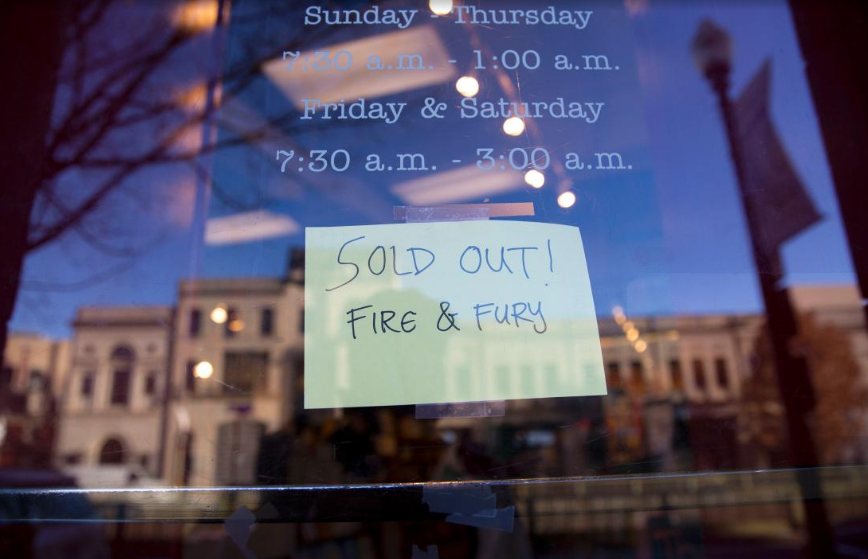 Sunday - Thursday
7:30 a.m. - 1:00 a.m.
Friday & Saturday
7:30 a.m. - 3:00 a.m.
SOLD OUT!
FIRE & FURY